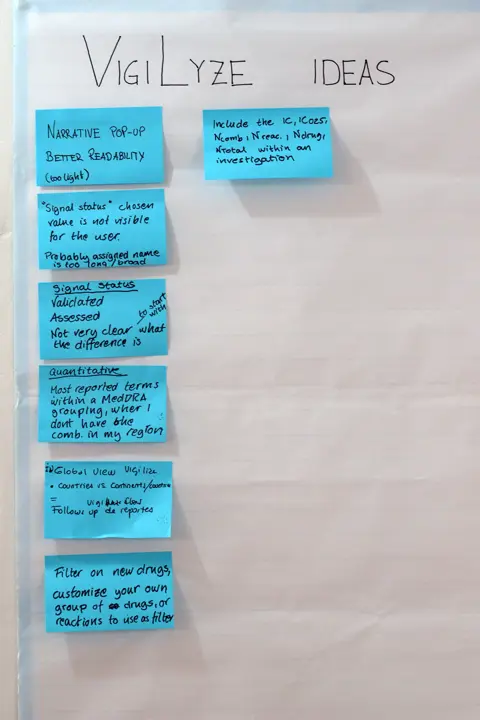 VIGILYZE IDEAS
NARRATIVE POP-UP
BETTER READABILITY
(too light)
Include the IC, IC025,
Ncomb, Nreac., Ndrug,
Ntotal within an
investigation
"Signal status" chosen
value is not visible
for the user.
Probably assigned name
is too long/broad
Signal Status
Validated
Assessed
to start
with
Not very clear what
the difference is
Quantitative
Most reported terms
within a MedDRA
grouping, wher I
dont have the
comb. in my region
Global View Vigilize
• COUNTRIES VS. CONTINENTS/
=
Follows up de reportes
Filter on new drugs,
customize your own
group of drugs, or
reactions to use as filter